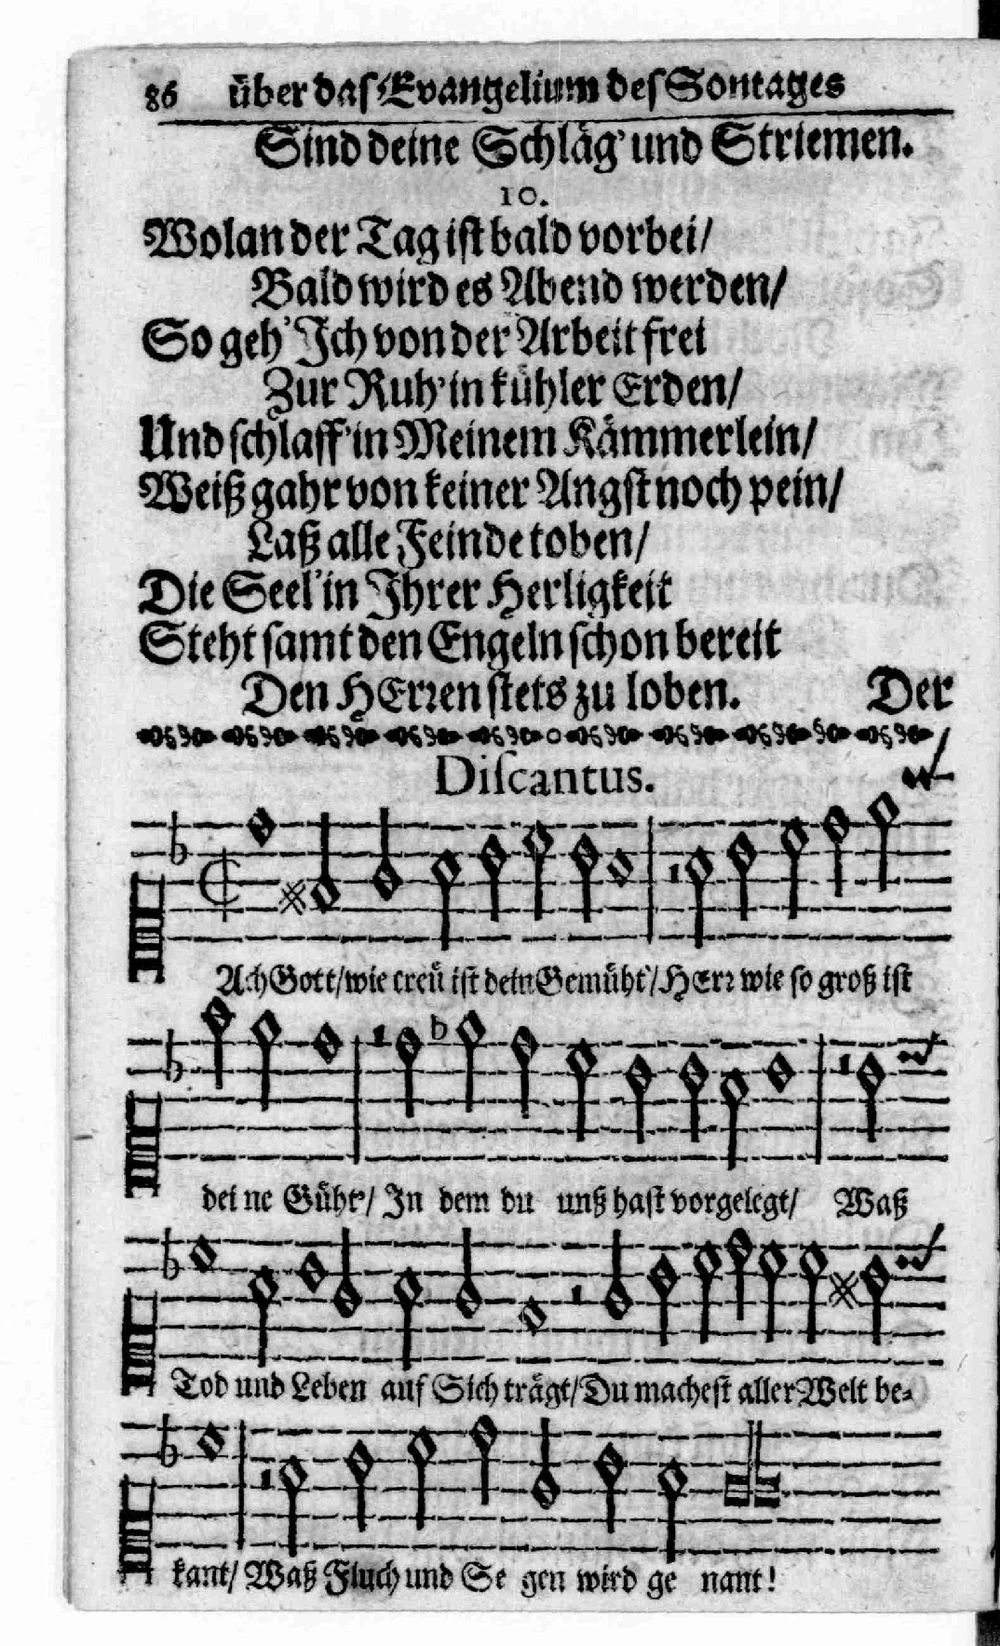 86 über das Evangelium des Sontages
Sind deine Schläg' und Striemen.
10.
Wolan der Tag ist bald vorbei/
Bald wird es Abend werden/
So geh' Ich von der Arbeit frei
Zur Ruh' in kühler Erden/
Und schlaff' in Meinem Kämmerlein/
Weiß gahr von keiner Angst noch pein/
Laß alle Feinde toben/
Die Seel' in Ihrer Herligkeit
Steht samt den Engeln schon bereit
Den HErren stets zu loben. Der
Discantus.
Ach Gott/ wie treü ist dein Gemüht'/ HErr wie so groß ist
dei ne Güht'/ In dem du unß hast vorgelegt/ Waß
Tod und Leben auf Sich trägt/ Du machest aller Welt be-
kant/ Waß Fluch und Se gen wird ge nant!